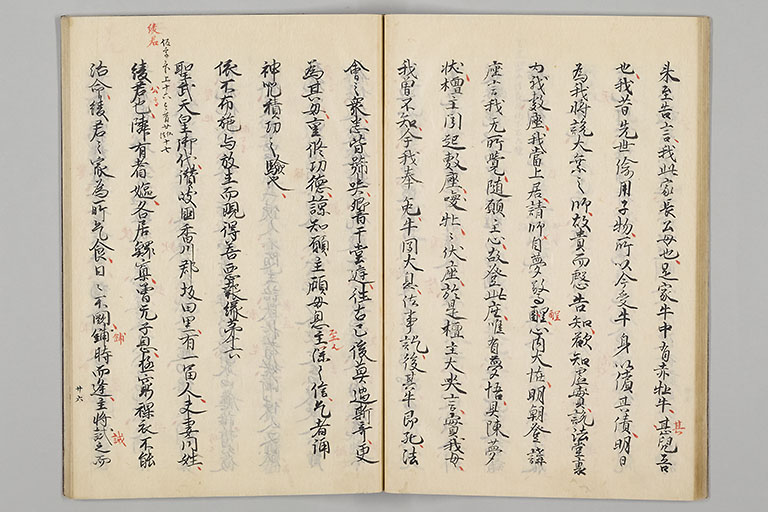 来至告言我此家長公母也是家牛中有赤牝牛其兒吾
也我昔先世偸用子物所以今受牛身以償其債明日
為我将説大乗之師故貴而慇告知欲知虚實説法堂裏
為我敷座我當上居請師自夢驚醒心内大怪明朝登講
座言我无所覺随願主心故登此座唯有夢悟具陳夢
状檀主聞起敷座喚牝々伏座於是檀主大哭言實我母
我曽不知今我奉免牛聞大息法事訖後其牛即死法
會之衆悉皆號哭響于堂庭往古已後莫過斯奇更
為其母重修功徳諒知願主顧母恩深之信乞者誦
神呪積功之驗也
依不布施与放生而現得善悪報縁第十六
聖武天皇御代讃岐國香川郡坂田里有一富人夫妻同姓
綾君也隣有耆嫗各居鰥寡曽无子息極窮裸衣不能
活命綾君之家為所乞食日々不闕餔時而逢主将試之而
其
醒
綾君
餔
誠
廿六